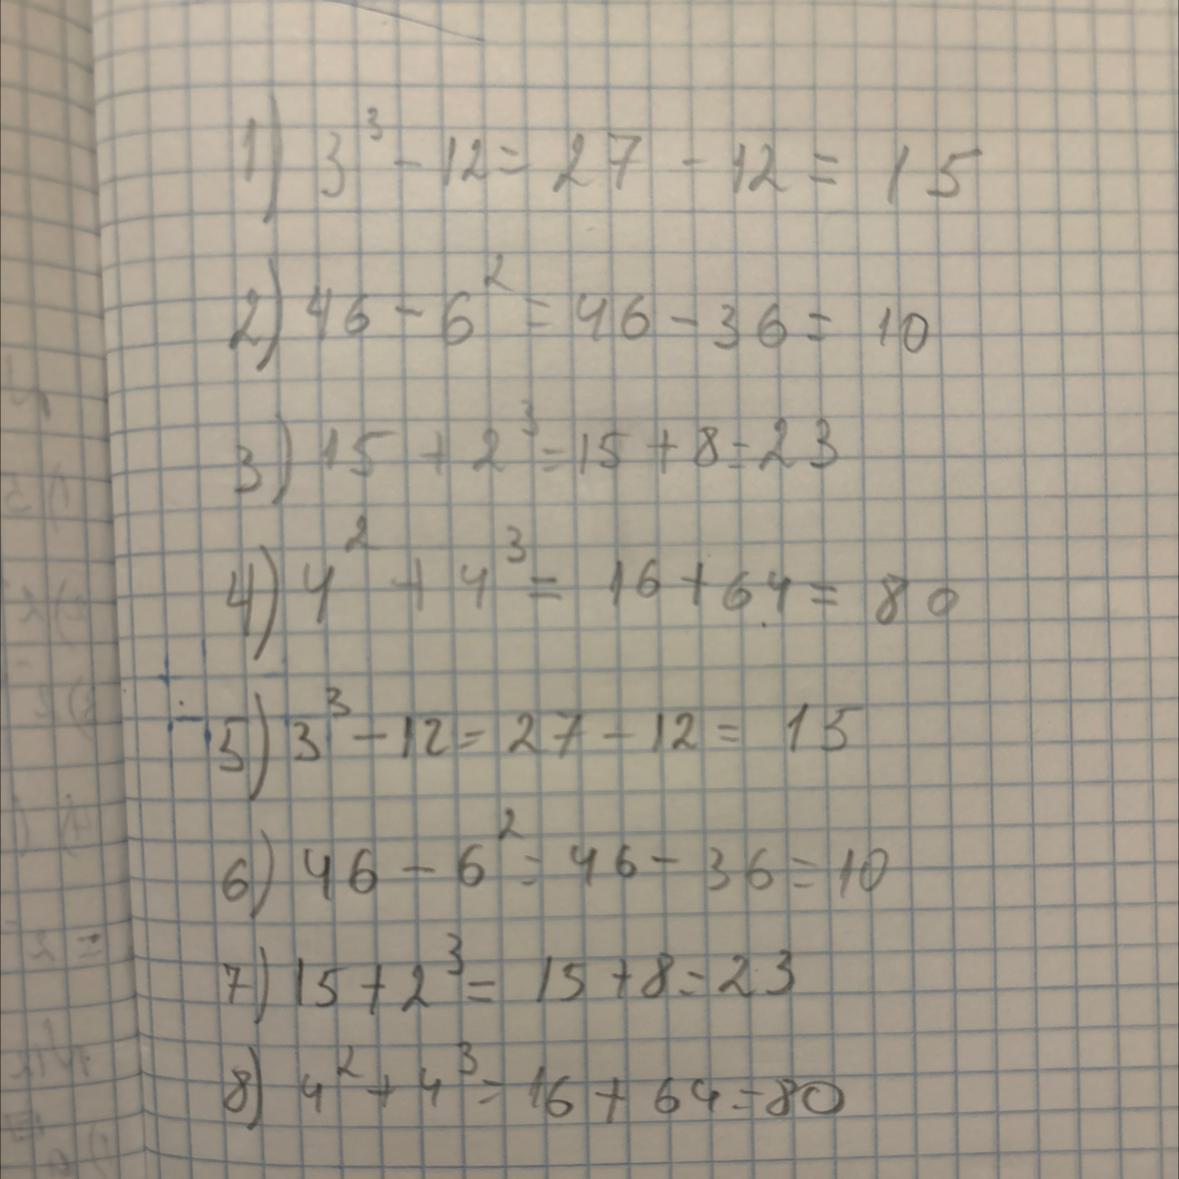 1) 3³ - 12 = 27 - 12 = 15
2) 46 - 6² = 46 - 36 = 10
3) 15 + 2³ = 15 + 8 = 23
4) 4² + 4³ = 16 + 64 = 80
5) 3³ - 12 = 27 - 12 = 15
6) 46 - 6² = 46 - 36 = 10
7) 15 + 2³ = 15 + 8 = 23
8) 4² + 4³ = 16 + 64 = 80